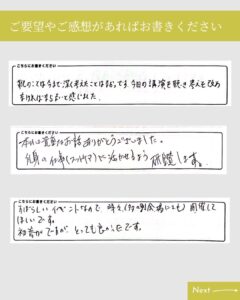 ご要望やご感想があればお書きください
こちらにお書きください
靴のことは今まで深く考えたことはなかったです。今回の講演を聴き考えを改め
なければならないと感じました。
こちらにお書きください
本日は貴重なお話ありがとうございました。
自身の仕事に活かせるよう研鑽します。
こちらにお書きください
すばらしいイベントなので時々開催して
ほしいです。
初参加ですがとっても良かったです。
Next